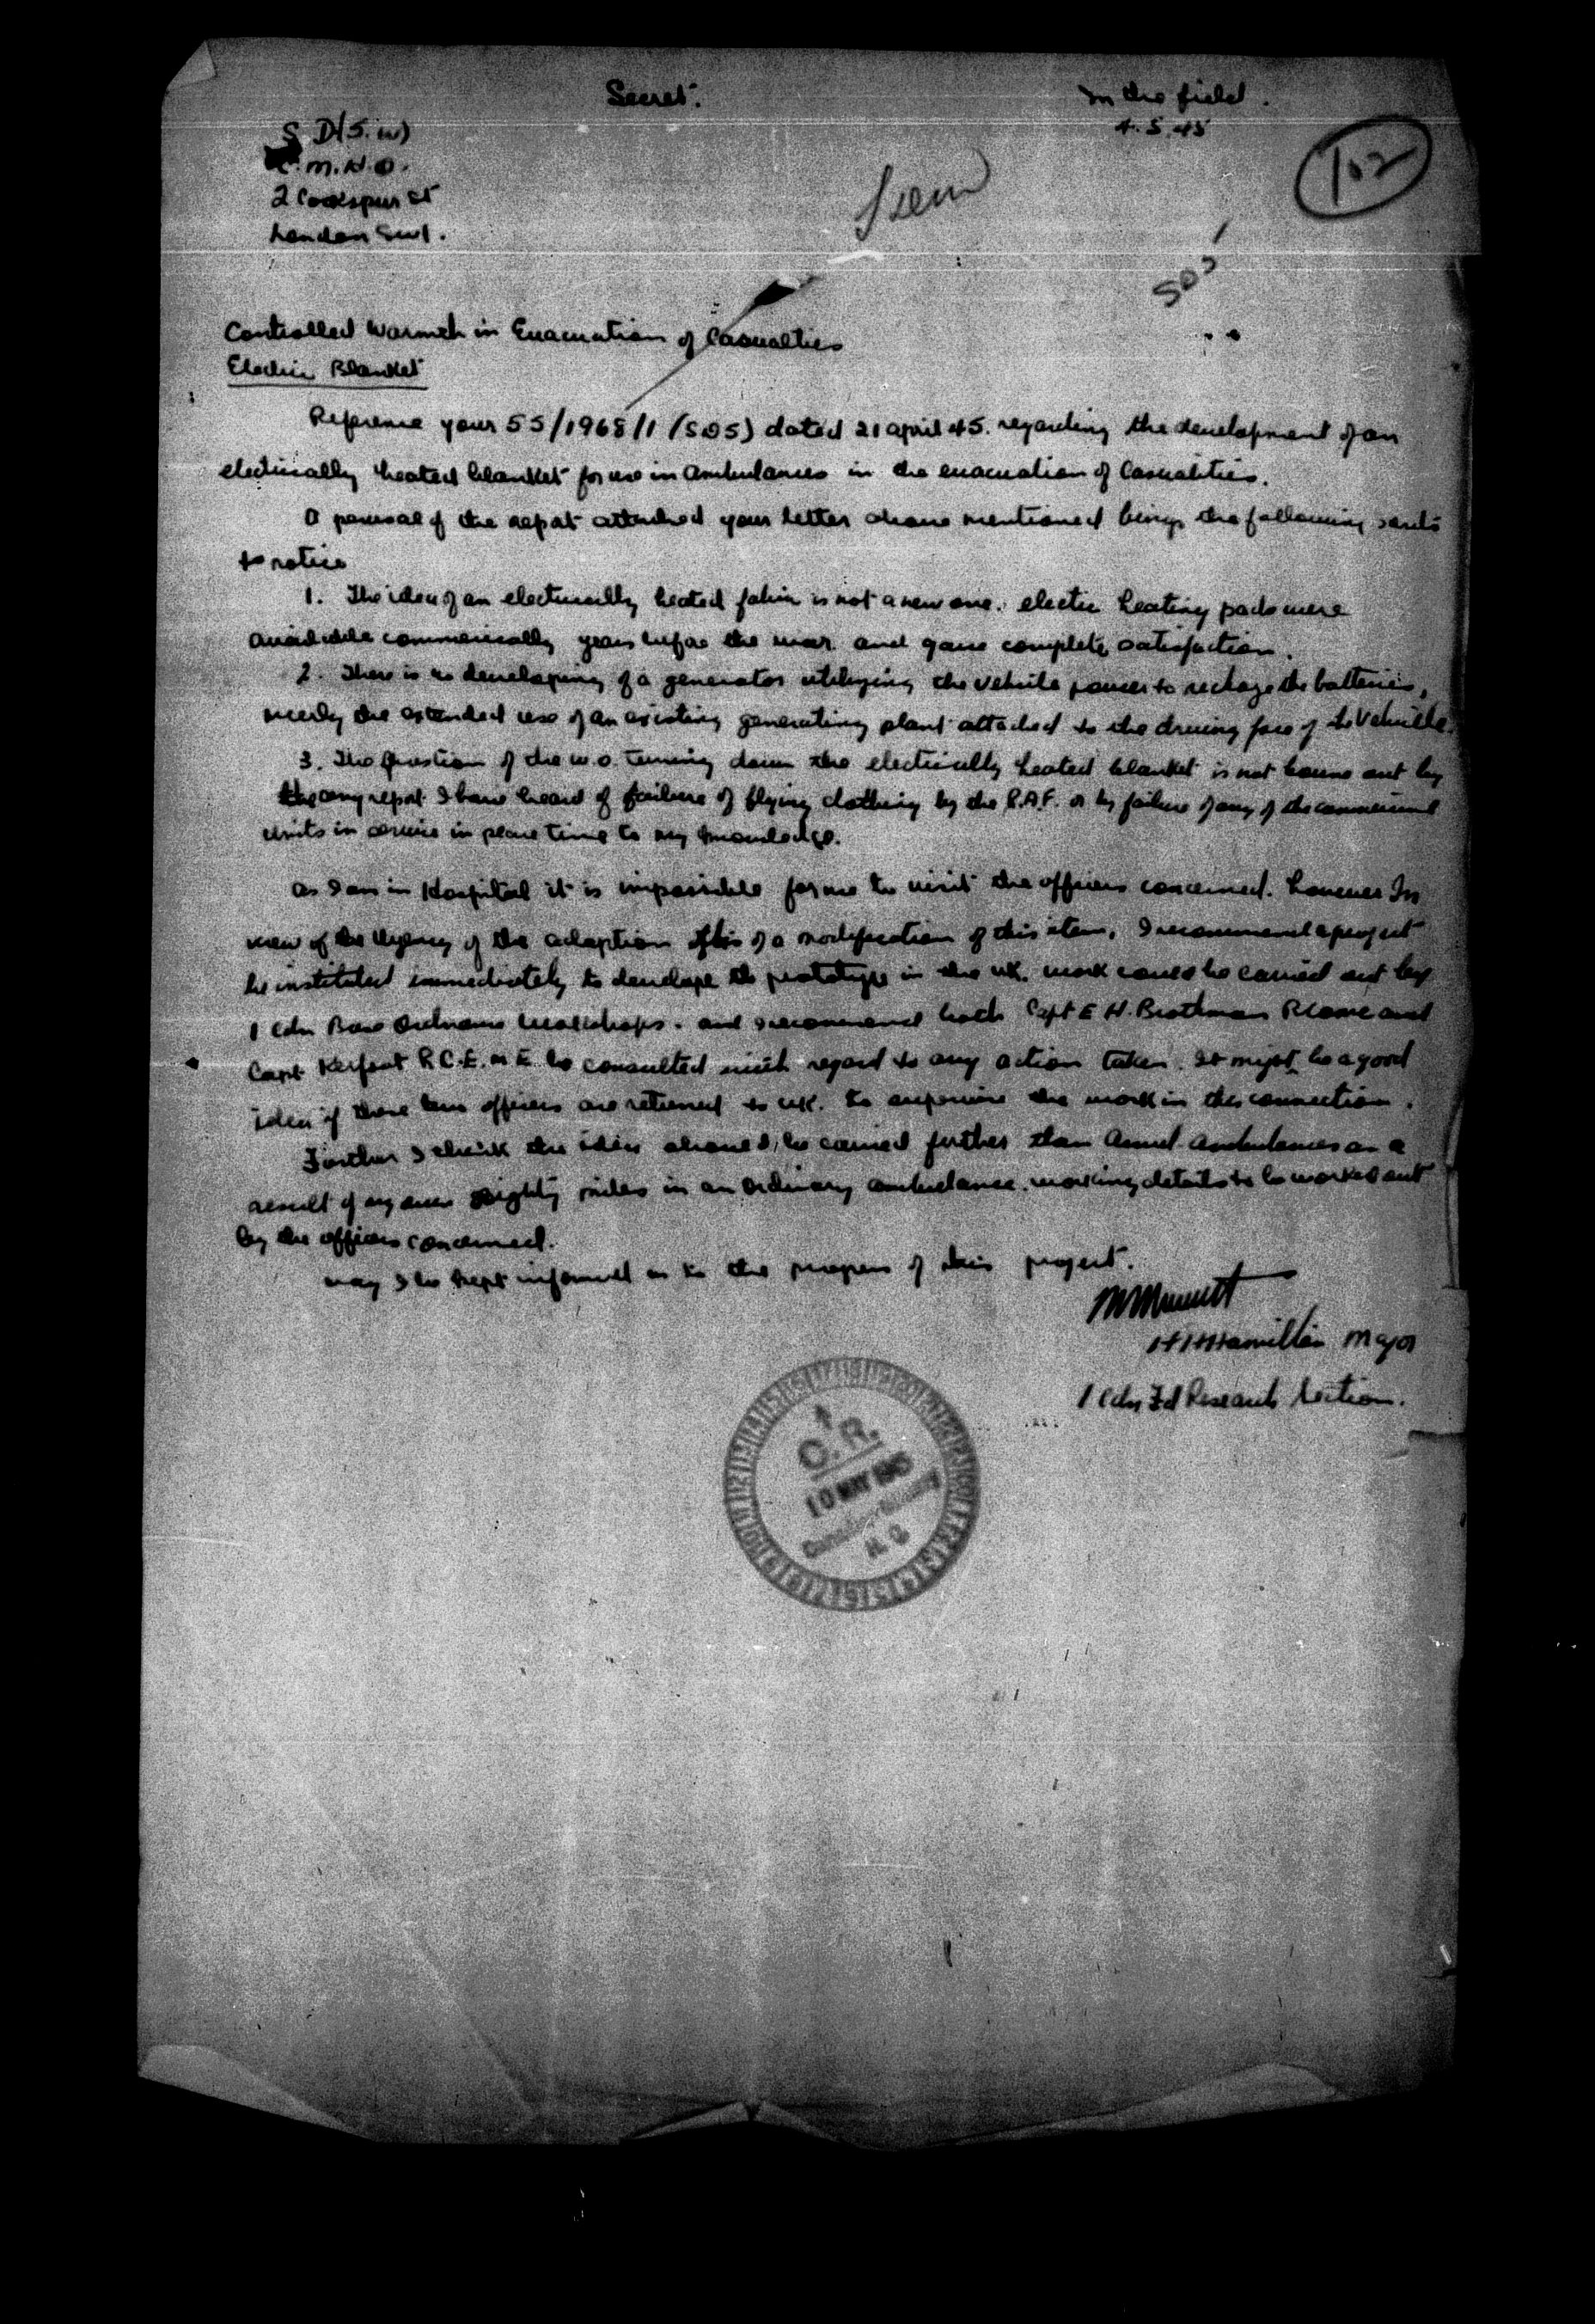 Secret.
In the field.
4.5.45
S D(S.W)
C.M.H.Q.
2 Cockspur St
London SW1.
102
SOS 1
Controlled Warmth in Evacuation of Casualties
Electric Blanket
Reference your 55/1968/1 (SOS) dated 21 april 45. regarding the development of an
electrically heated blanket for use in Ambulances in the evacuation of Casualities.
A perusal of the report attached your letter above mentioned brings the following
to notice
1. The idea of an electrically heated fabric is not a new one. electric heating pads were
available commercially years before the war. and gave complete satisfaction.
2. There is no developing of a generator utilizing the vehicle power to recharge the batteries,
merely the extended use of an existing generating plant attached to the driving force of the Vehicle.
3. The Question of the W.O. turning down the electrically heated blanket is not borne out by
any report I have heard of failure of flying clothing by the R.A.F. or by failure of any of the commercial
units in service in peace time to my knowledge.
as I am in Hospital it is impossible for me to visit the officers concerned. however In
view of the urgency of the adaption of a modification of this item, I recommend a project
be instituted immediately to develope the prototype in the UK. work could be carried out by
1 Cdn Base Ordnance Workshops. and I recommend both Capt E H. Brothman and
Capt Kerfoot R.C.E.M.E. be consulted with regard to any action taken. It might be a good
idea if these two officers are returned to UK. to supervise the work in this connection.
Further I think the idea should be carried further than Armd. ambulances as a
result of my own eighty miles in an ordinary ambulance. working details to be worked out
by the officers concerned.
may I be kept informed as to the progress of this project.
H H Hamilton Major
1 Cdn Fd Research Section.
C. R.
10 MAY 1945
Canadian
H Q